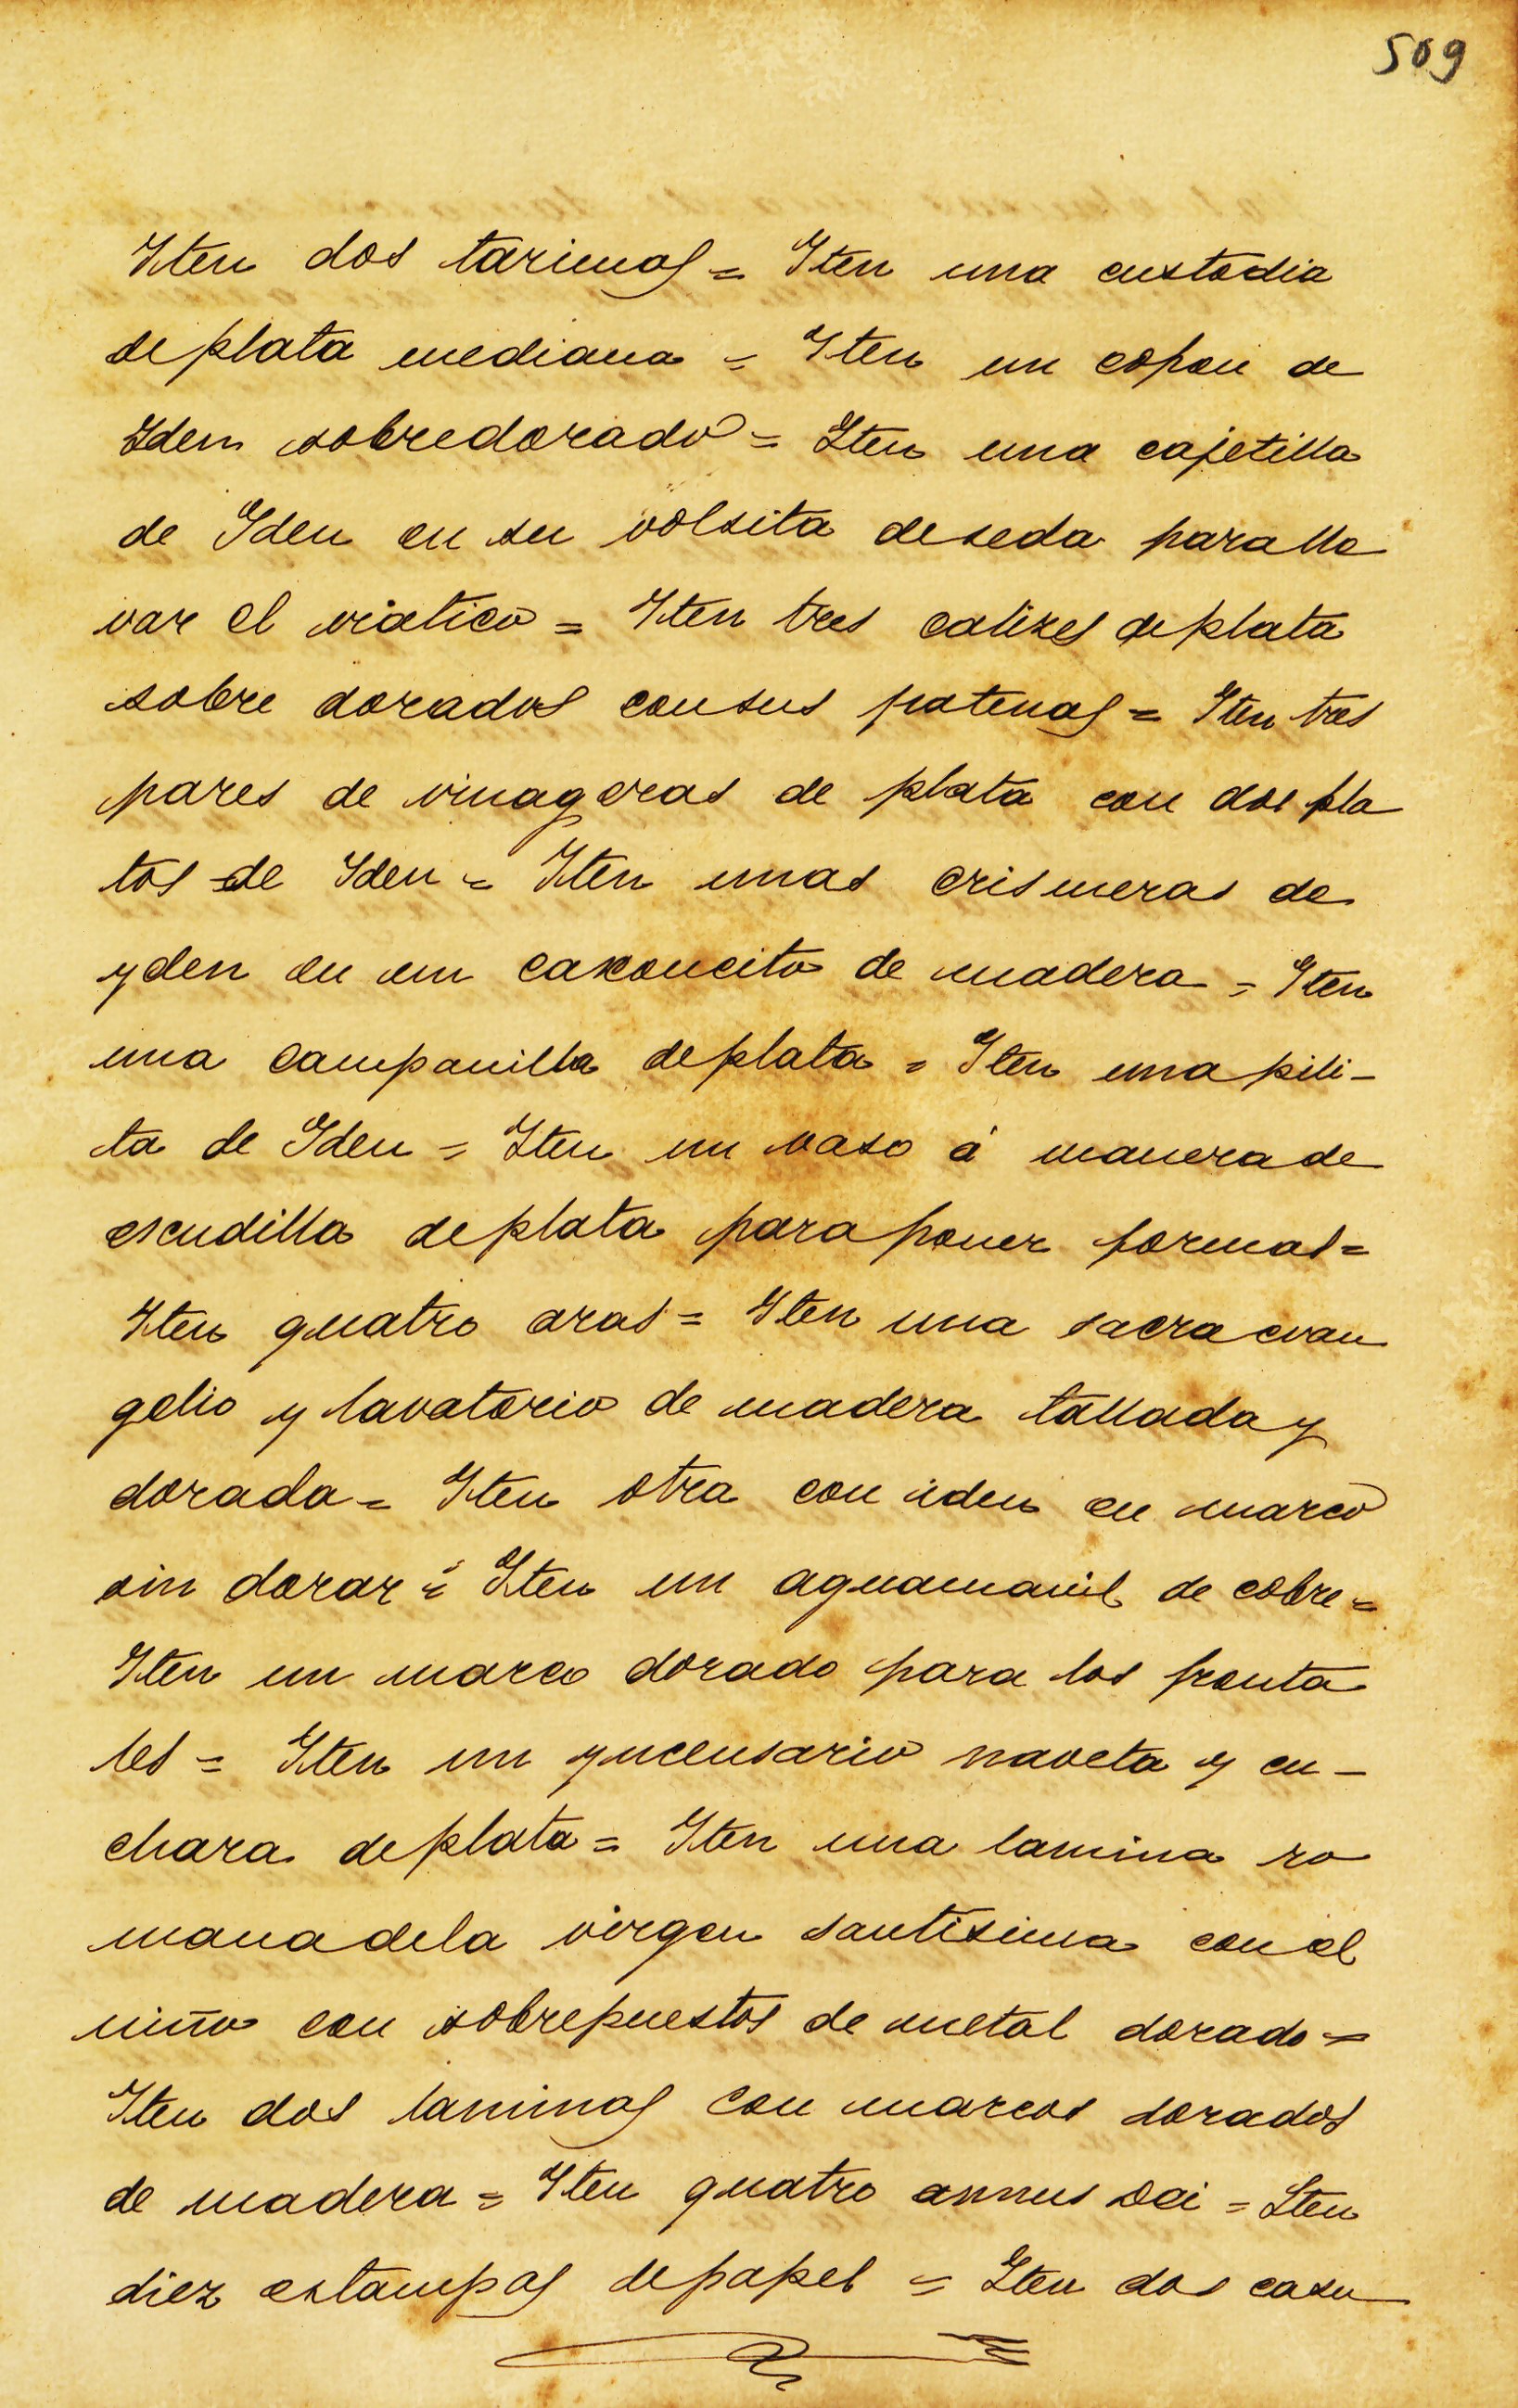 509
Iten dos tarimas = Iten una custodia
de plata mediana = Iten un copon de
Iden sobredorado = Iten una cajetilla
de Iden en su volsita de seda para lle
var el viatico = Iten tres calizes de plata
sobre dorados con sus patenas = Iten tres
pares de vinageras de plata con dos pla
tos de Iden = Iten unas crismeras de
yden en un caxoncito de madera = Iten
una campanilla de plata = Iten una pili-
ta de Iden = Iten un vaso á manera de
escudilla de plata para poner formas =
Iten quatro aras = Iten una sacra evan
gelio y lavatorio de madera tallada y
dorada = Iten otra con iden en marco
sin dorar = Iten un aguamanil de cobre =
Iten un marco dorado para los fronta
les = Iten un yncensario naveta y cu-
chara de plata = Iten una lamina ro
mana de la virgen santisima con el
niño con sobrepuestos de metal dorado =
Iten dos laminas con marcos dorados
de madera = Iten quatro annus Dei = Iten
diez estampas de papel = Iten dos casu